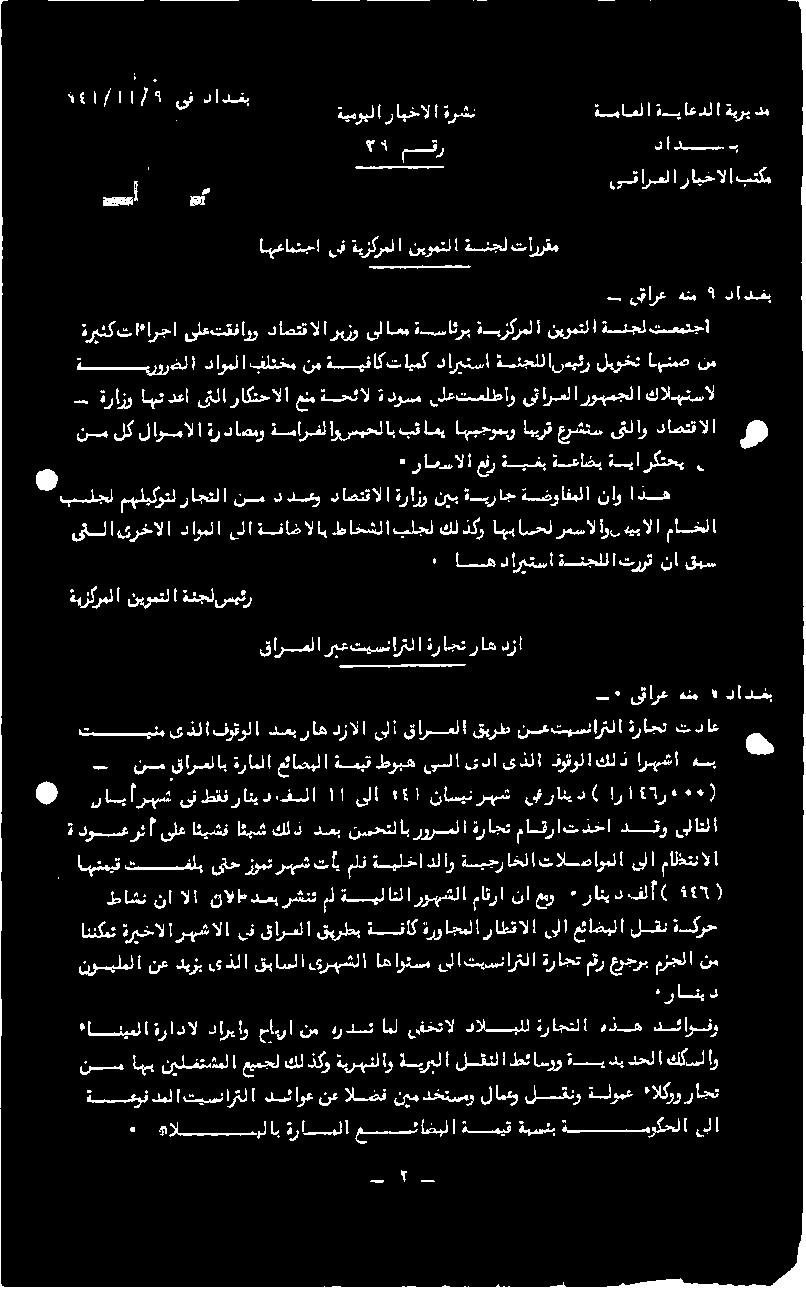 مديرية الدعاية العامة
بغداد
مكتب الاخبار العراقي
نشرة الاخبار اليومية
رقم ٣٩
بغداد في ٩/١١/٩٤١
مقررات لجنة التموين المركزية في اجتماعها
بغداد ٩ منه عراقي —
اجتمعت لجنة التموين المركزية برئاسة معالي وزير الاقتصاد ووافقت على اجراءات كثيرة
من ضمنها تخويل رئيس اللجنة استيراد كميات كافية من مختلف المواد الضرورية
لاستهلاك الجمهور العراقي واطلعت على مسودة لائحة منع الاحتكار التي اعدتها وزارة —
الاقتصاد والتي ستشرع قريبا وبموجبها يعاقب بالحبس والغرامة ومصادرة الاموال كل من
يحتكر اية بضاعة بغية رفع الاسعار ٠
هذا وان المفاوضة جارية بين وزارة الاقتصاد وعدد من التجار لتوكيلهم لجلب
الخام الابيض والاسمر لحسابها وكذلك لجلب الشخاط بالاضافة الى المواد الاخرى التي
سبق ان قررت اللجنة استيرادها ٠
رئيس لجنة التموين المركزية
ازدهار تجارة الترانسيت عبر العراق
بغداد ٩ منه عراقي ٠ —
عادت تجارة الترانسيت عن طريق العراق الى الازدهار بعد الوقوف الذي منيت
به اشهرا ذلك الوقوف الذي ادى الى هبوط قيمة البضائع المارة بالعراق من —
(١٫١٤٦٫٠٠٠) دينار في شهر نيسان ٩٤١ الى ١١ الف دينار فقط في شهر أيار
التالي وقد اخذت ارقام تجارة المرور بالتحسن بعد ذلك شيئا فشيئا على أثر عودة
الانتظام الى المواصلات الخارجية والداخلية فلم يأت شهر تموز حتى بلغت قيمتها
(٩٤٦) ألف دينار ٠ ومع ان ارقام الشهور التالية لم تنشر بعد الان الا ان نشاط
حركة نقل البضائع الى الاقطار المجاورة كافة بطريق العراق في الاشهر الاخيرة تمكننا
من الجزم برجوع رقم تجارة الترانسيت الى مستواها الشهري السابق الذي يزيد عن المليون
دينار ٠
وفوائد هذه التجارة للبلاد لاتخفى لما تدره من ارباح وايراد لادارة الميناء
والسكك الحديدية ووسائط النقل البرية والنهرية وكذلك لجميع المشتغلين بها من
تجار ووكلاء عمولة ونقل وعمال ومستخدمين فضلا عن عوائد الترانسيت المدفوعة
الى الحكومة بنسبة قيمة البضائع المارة بالبلاد ٠
— ٢ —